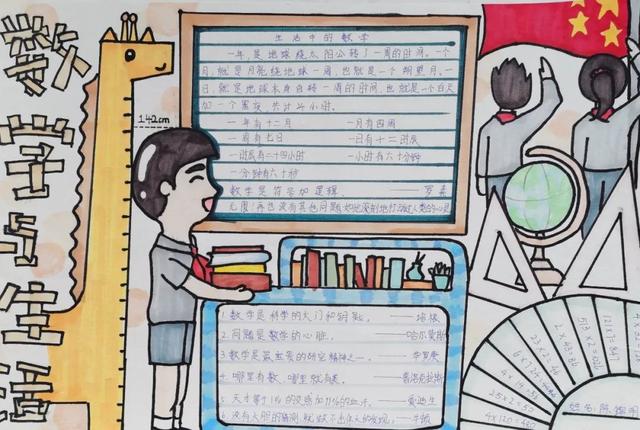 数学与生活
142cm
生活中的数学
一年,是地球绕太阳公转了一周的时间。一个
月,就是月亮绕地球一周,也就是一个朔望月。一
日,就是地球本身自转一周的时间,也就是一个白天
加一个黑夜,共计24小时。
一年有十二月 一月有四周
一周有七日 一日有十二时辰
一时辰有二十四小时 一小时有六十分钟
一分钟有六十秒
数学是符号加逻辑。——罗素
无限!再也没有其他问题如此深刻地打动过人类的心灵
1. 数学是科学的大门和钥匙。——培根
2. 问题是数学的心脏。——哈尔莫斯
3. 数学是最宝贵的研究精神之一。——华罗庚
4. 哪里有数,哪里就有美。——普洛克拉斯
5. 天才等于1%的灵感加99%的血汗。——爱迪生
6. 没有大胆的猜测,就做不出伟大的发现。——牛顿
25×2=50
4×120=480
姓名:陈